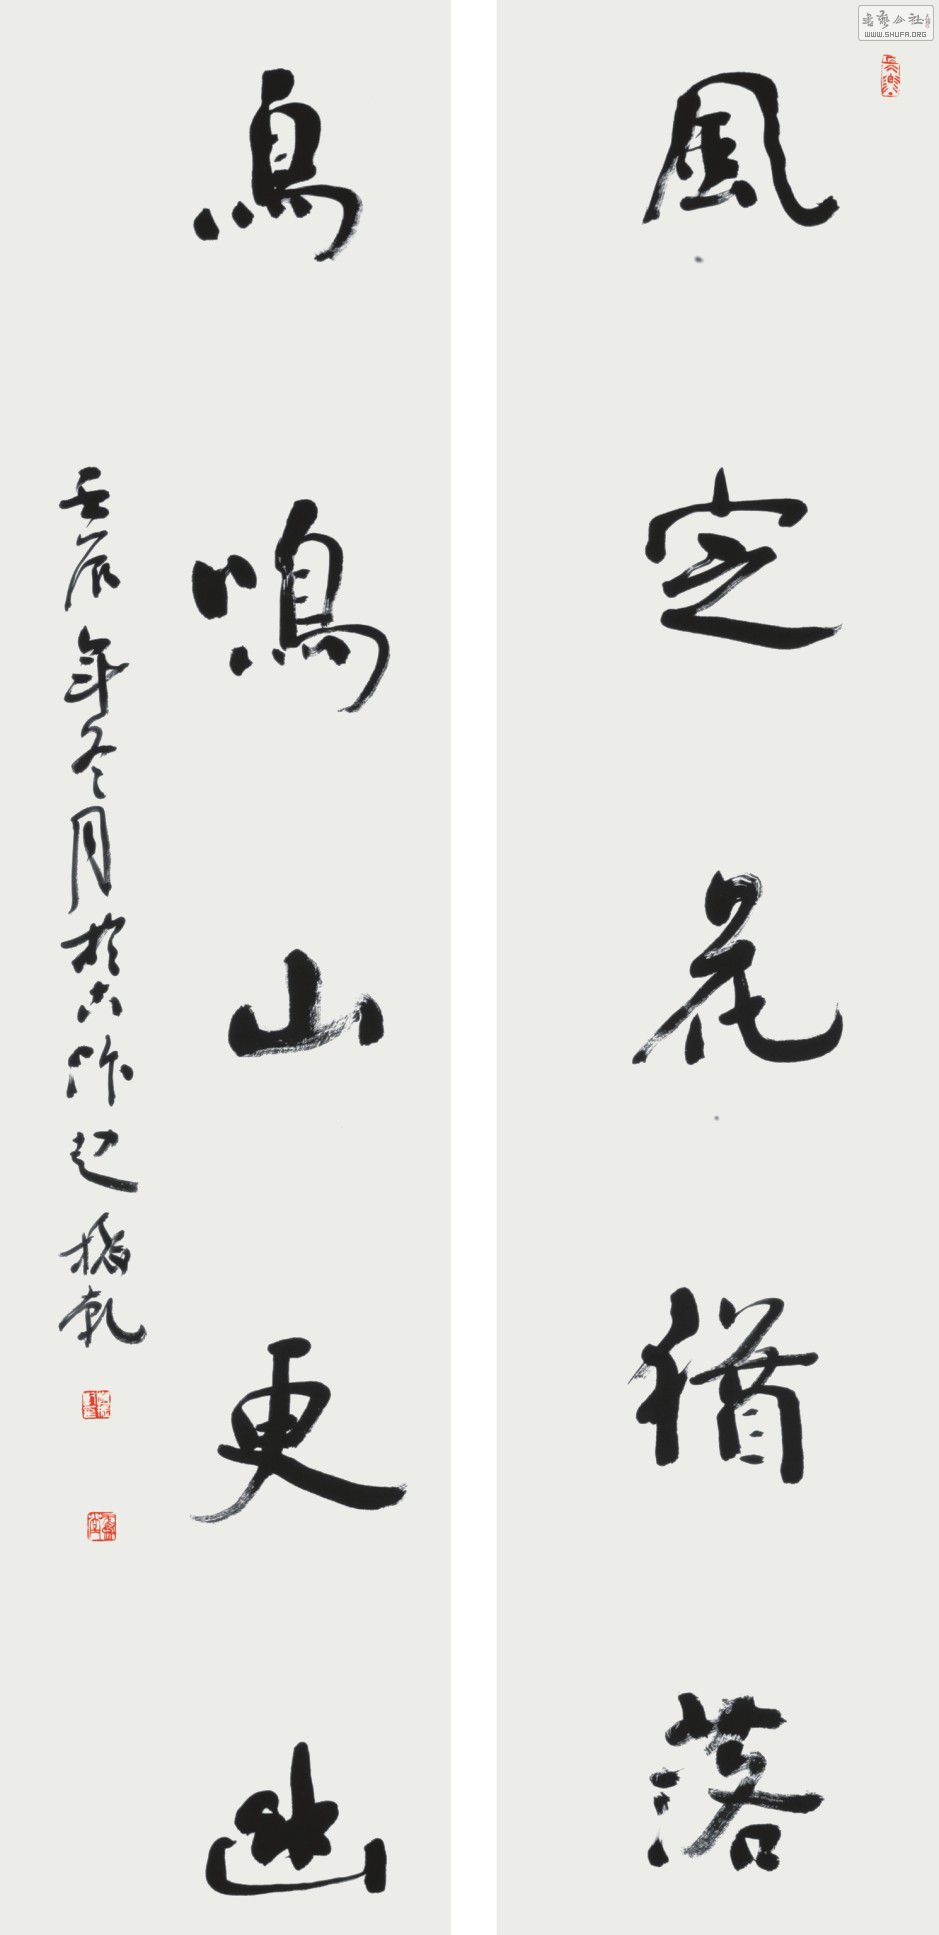 風定花猶落
鳥鳴山更幽
壬辰年冬月於
書藝公社
WWW.SHUFA.ORG
長樂